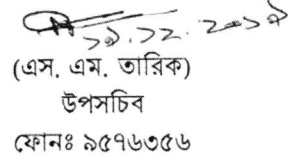 ১৯.১২.২০১৯
(এস. এম. তারিক)
উপসচিব
ফোনঃ ৯৫৭৬৩৫৬